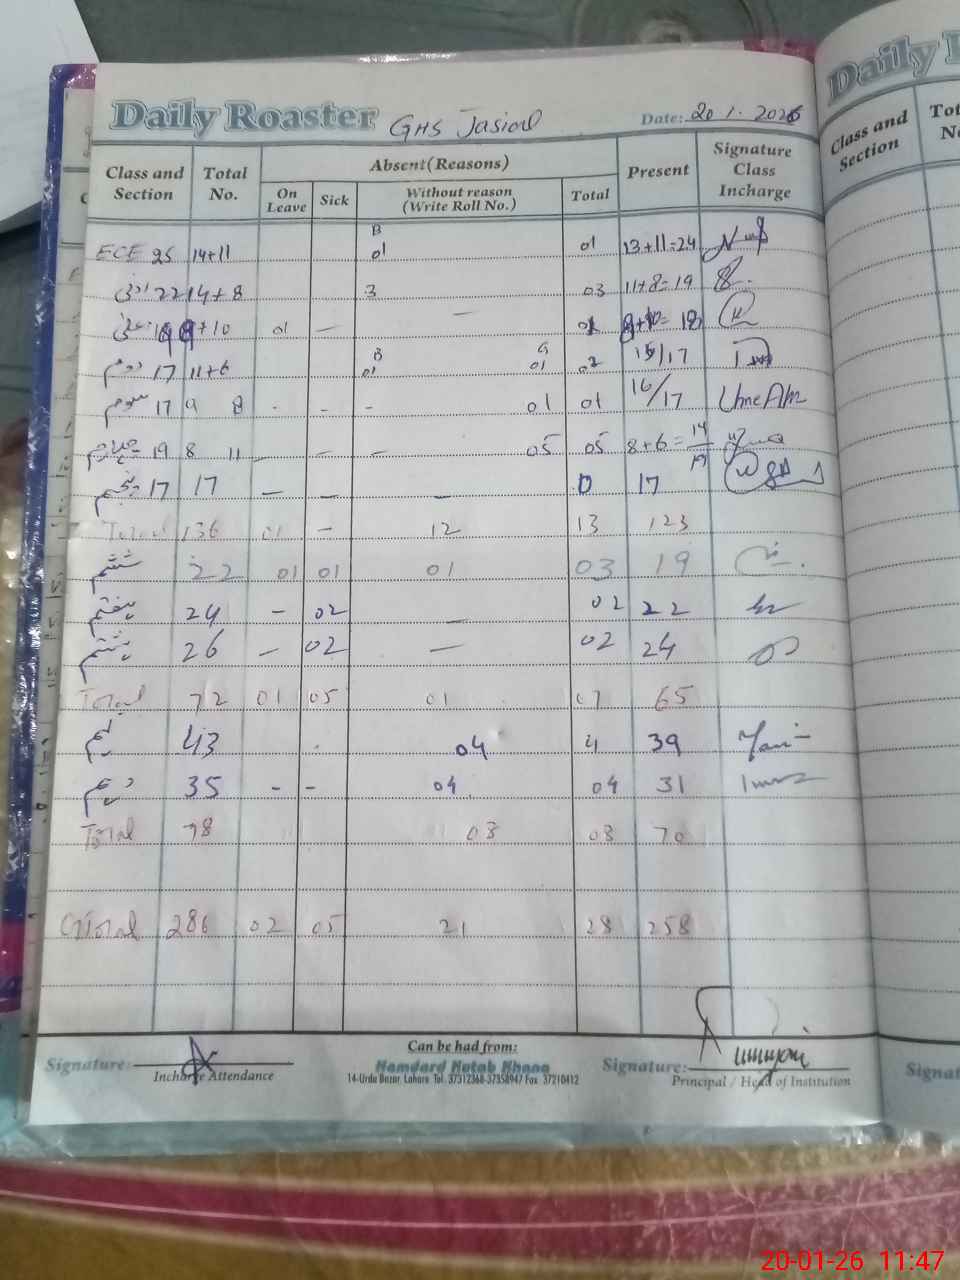 Daily Roaster GHS Jasial Date: 20.1.2026
Class and Section Total No. Absent (Reasons) Present Signature Class Incharge
On Leave Sick Without reason (Write Roll No.) Total
ECE 25 14+11 B 01 01 13+11=24
22 14+8 3 03 11+8=19
+10 01 —
دوم 17 11+6 B 01 G 01 02 /17
سوم 17 9 8 - - - 01 01 16/17
19 8 11 — — — 05 05 8+6=14/19
پنجم 17 17 — — — 0 17
Total 136 01 – 12 13 123
ششم 22 01 01 01 03 19
ہفتم 24 – 02 — 02 22
ہشتم 26 — 02 — 02 24
Total 72 01 05 01 07 65
نہم 43 04 4 39
دہم 35 - - 04 04 31
Total 78 08 08 70
G Total 286 02 05 21 28 258
Signature: Incharge Attendance
Can be had from:
Hamdard Kutab Khana
14-Urdu Bazar, Lahore Tel. 37312368-37358947 Fax 37210412
Signature: Principal / Head of Institution
Daily
Class and Section
20-01-26 11:47